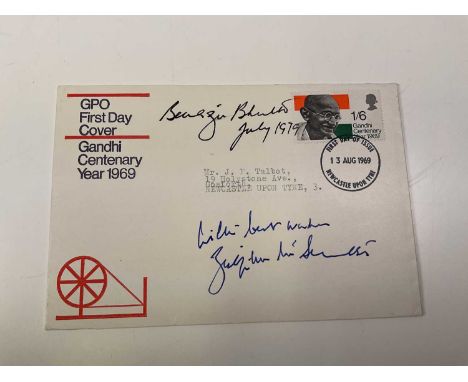 GPO
First Day
Cover
Gandhi
Centenary
Year 1969
Benazir Bhutto
July 1979
1/6
Gandhi
Centenary
Year 1969
FIRST DAY OF ISSUE
13 AUG 1969
NEWCASTLE UPON TYNE
Mr. J. F. Talbot,
19 Holystone Ave.,
Gosforth,
NEWCASTLE UPON TYNE, 3.
with best wishes